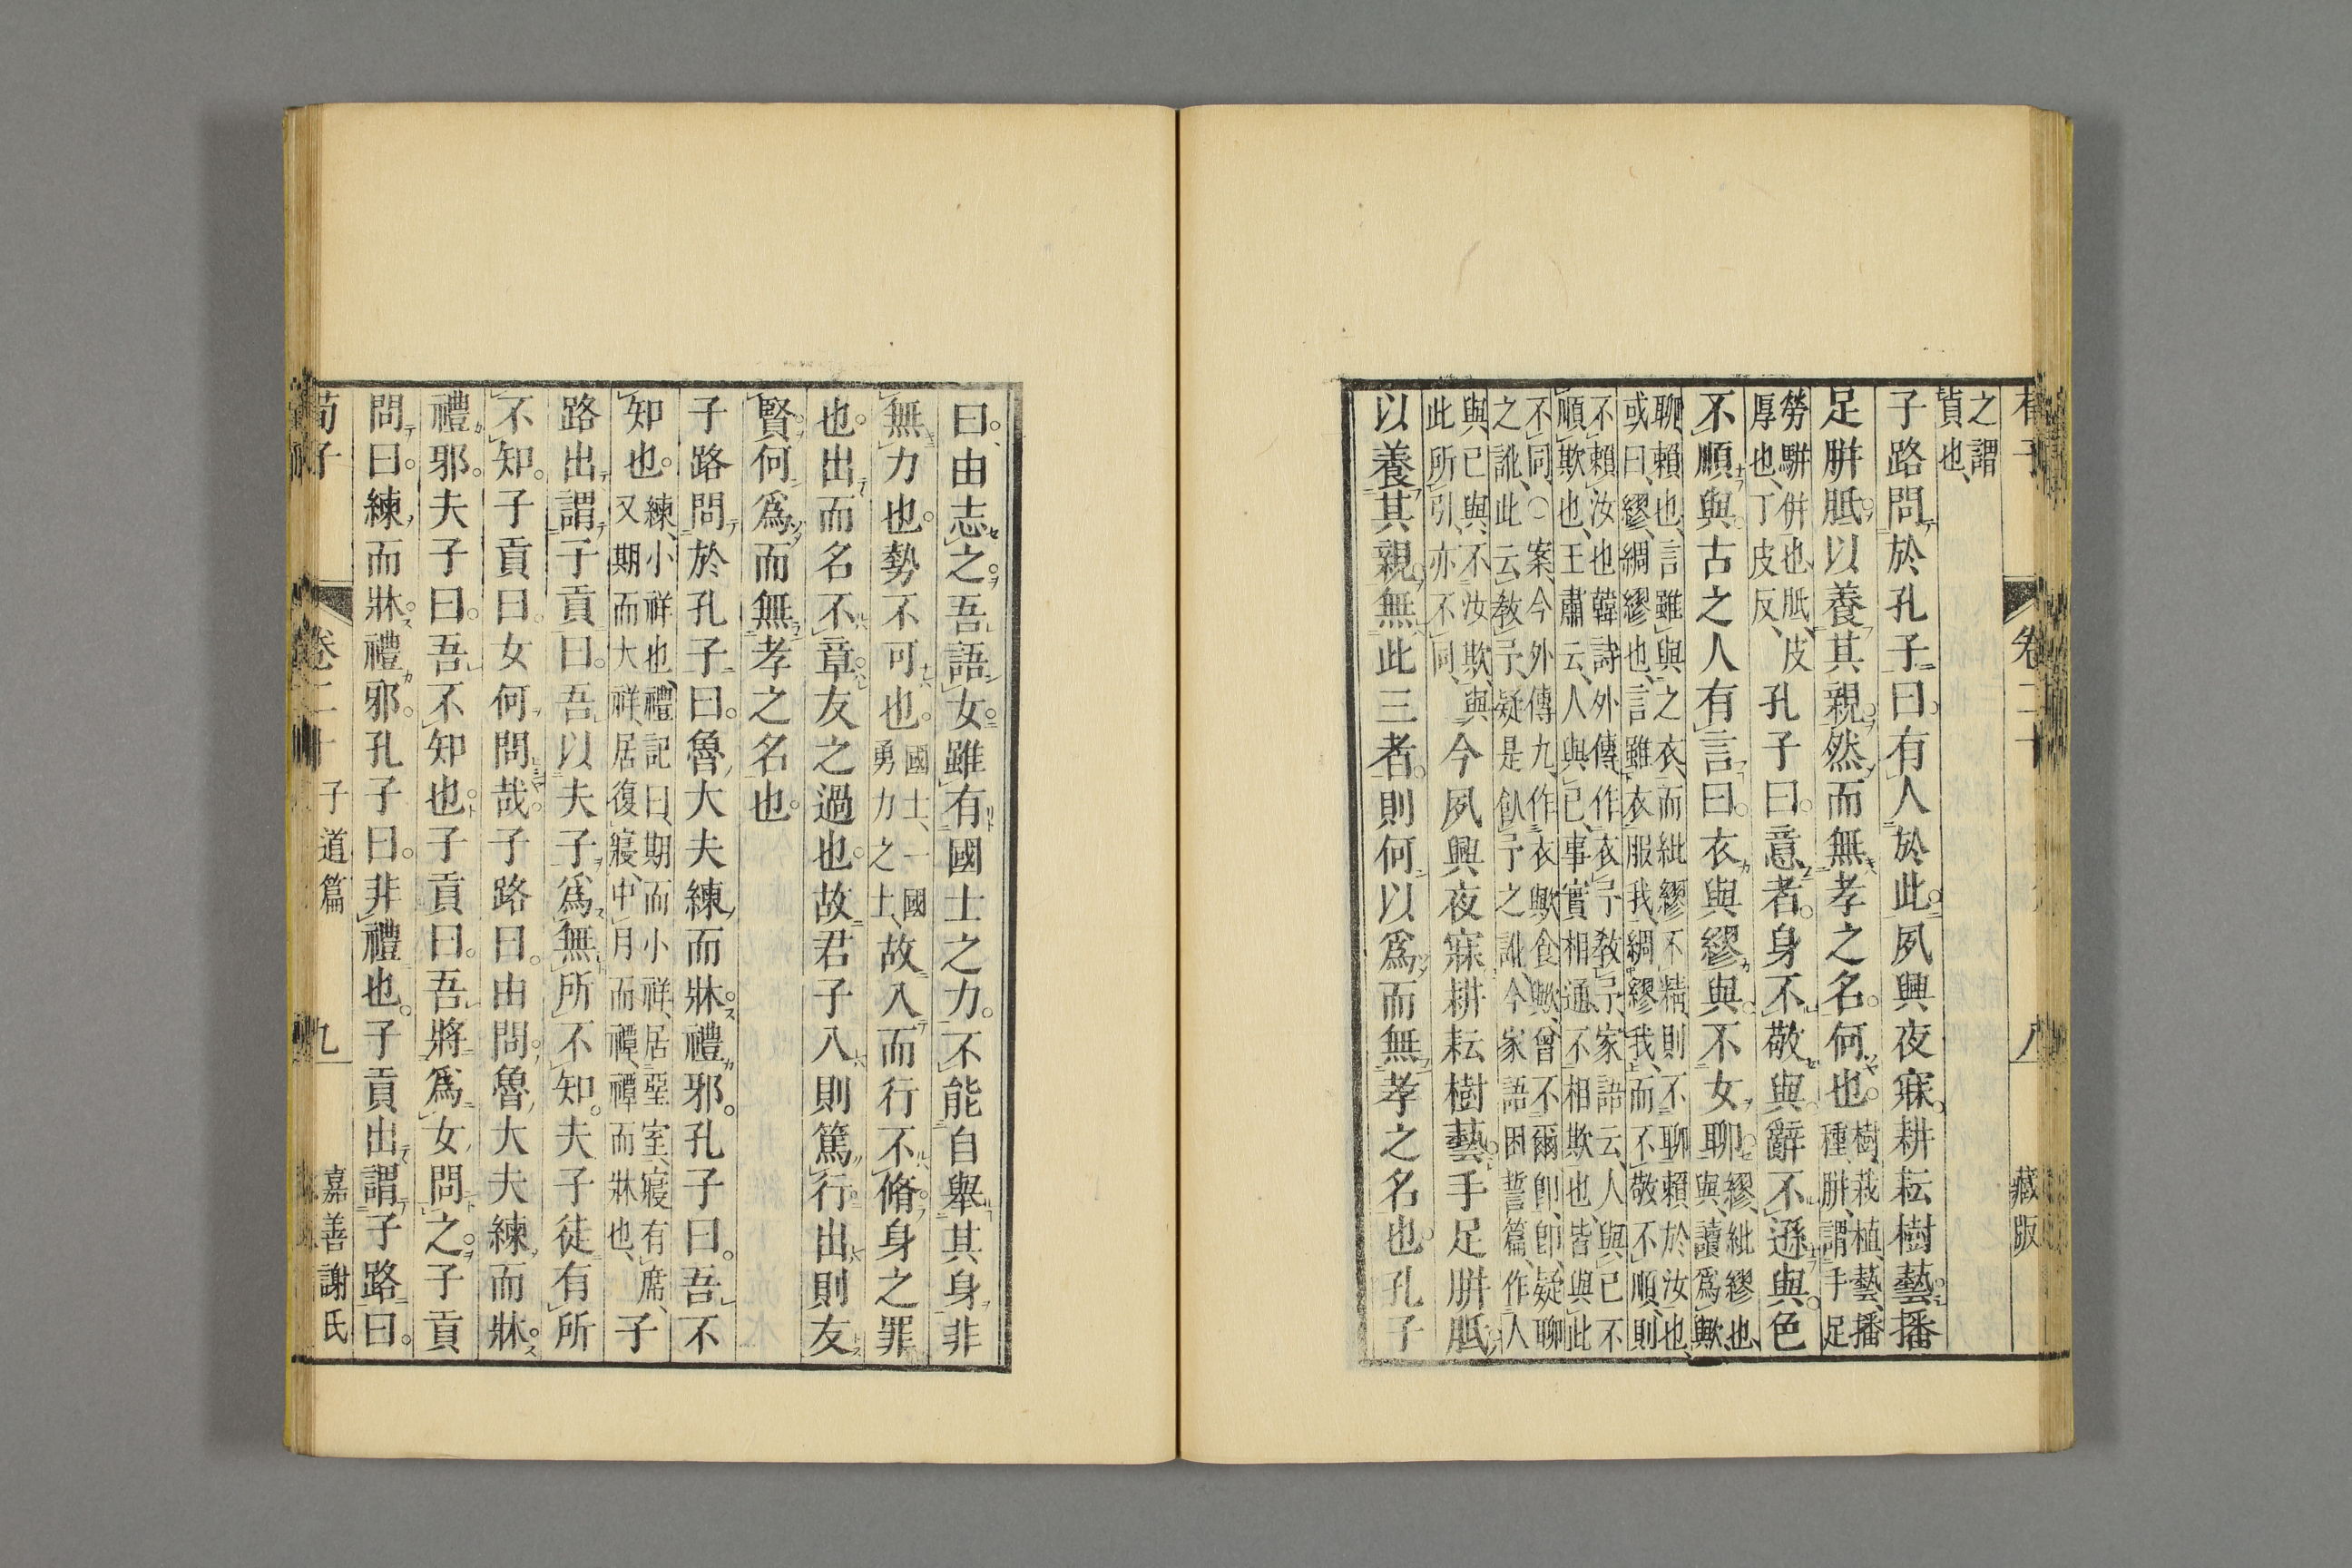 荀子 卷二十 八 藏版
之謂
貞也
子路問於孔子曰有人於此夙興夜寐耕耘樹藝播
足胼胝以養其親然而無孝之名何也
樹栽植藝播
種胼謂手足
勞駢併也胝皮
厚也丁皮反
孔子曰意者身不敬與辭不遜與色
不順與古之人有言曰衣與繆與不女聊
繆紕繆也
與讀爲歟
聊賴也言雖與之衣而紕繆不精則不聊賴於汝也
或曰繆綢繆也言雖衣服我綢繆我而不敬不順則
不賴汝也韓詩外傳作衣予敎予家語云人與已不
順欺也王肅云人與已事實相通不相欺也皆與此
不同○案今外傳九作衣歟食歟曾不爾卽卽疑聊
之訛此云敎予疑是飤予之訛今家語困誓篇作人
與已與不汝欺與
此所引亦不同
今夙興夜寐耕耘樹藝手足胼胝
以養其親無此三者則何以爲而無孝之名也孔子
曰由志之吾語女雖有國士之力不能自舉其身非
無力也勢不可也
國士一國
勇力之士
故入而行不脩身之罪
也出而名不章友之過也故君子入則篤行出則友
賢何爲而無孝之名也
子路問於孔子曰魯大夫練而牀禮邪孔子曰吾不
知也
練小祥也禮記曰期而小祥居堊室寢有席
又期而大祥居復寢中月而禫禫而牀也
子
路出謂子貢曰吾以夫子爲無所不知夫子徒有所
不知子貢曰女何問哉子路曰由問魯大夫練而牀
禮邪夫子曰吾不知也子貢曰吾將爲女問之子貢
問曰練而牀禮邪孔子曰非禮也子貢出謂子路曰
荀子 卷二十 子道篇 九 嘉善謝氏